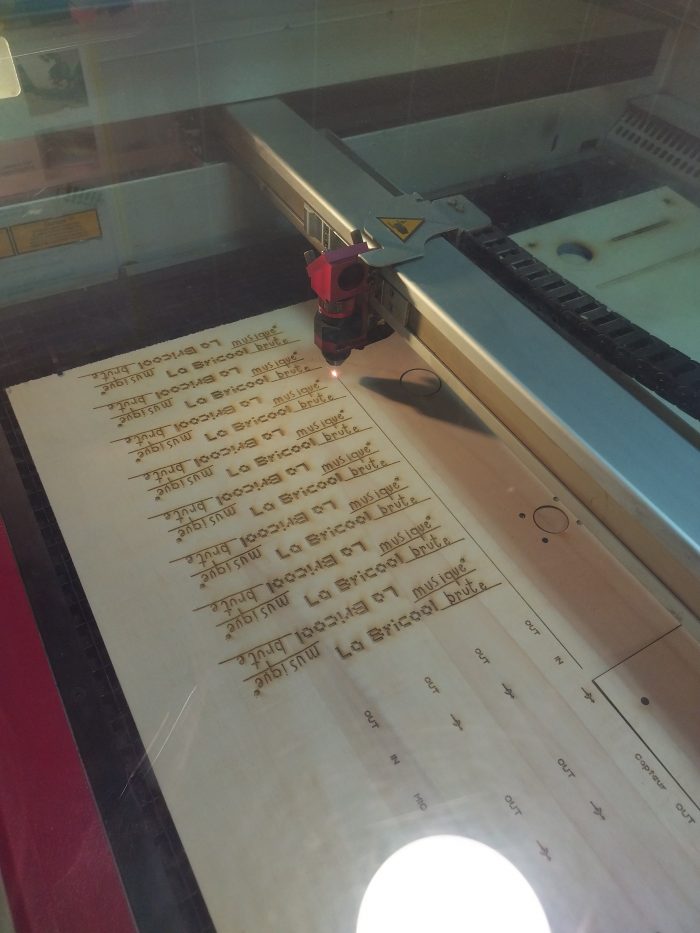 musique
La Bricool brute
musique
La Bricool brute
musique
La Bricool brute
musique
La Bricool brute
musique
La Bricool brute
musique
La Bricool brute
musique
La Bricool brute
musique
La Bricool brute
musique
La Bricool brute
musique
La Bricool brute
musique
La Bricool brute
musique
La Bricool brute
OUT
IN
OUT
OUT
OUT
IN
MIC
OUT
OUT
capteur
OUT